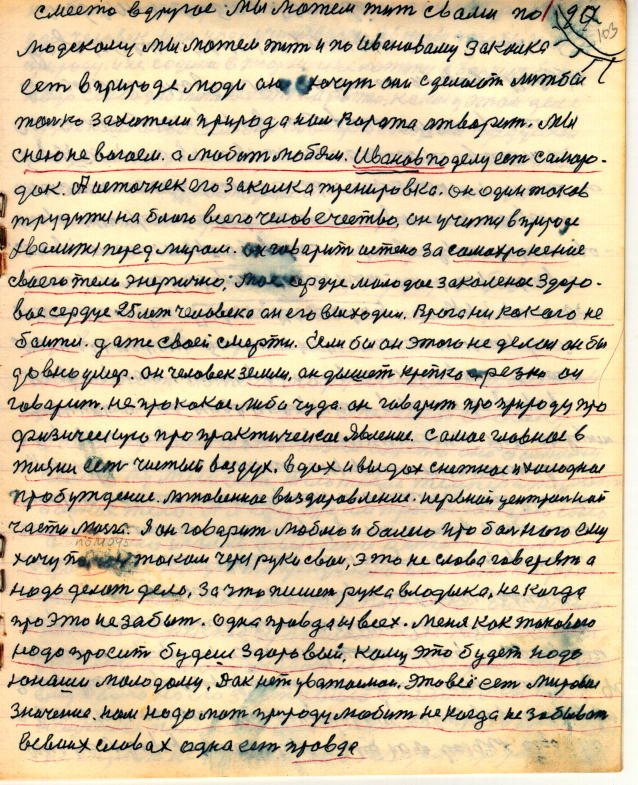 сместо вдругое. Мы можем тит свами по
99
103
людскому, мы можем тит и по Ивановаму Закалка
ест вприроде люди они хочут они сделают литбы
толко захотели природа нам варота атварит. Мы
снею не ваюем. а любит любям. Иванов поделу ест самаро-
док. Источнек его закалка тренировка. он один таков
трудитя на благо всего человечество, он учитя вприроде
хвалитя перед миром. он гаварит истено за самахронение
своего тела энергично, так сердце молодое закаленое здоро-
вое сердце 25 лет человека он его выходил. Врага ни какого не
баится. даже своей смерти. Если бы он этого не делал он бы
довно умер. он человек земли, он дышет крепко и резко он
говарит, не про какое либа чуда. он говарит про природу про
физическую про практическое явление. самое главное в
жизни ест чистый воздух. вдох и выдох снежное и холодное
пробуждение. мгновенное выздоровление. нервной центральной
части мозга. Я он говарит люблю и балею про болного ему
хочу помочь током через руки свои, это не слова говарят а
надо делат дело, за что пишет рука владыка, не когда
про это не забыт. одна правда у всех. меня как такового
надо просит будеш здоровый, кому это будет надо
юнаши молодому, дак нет уважаемаи. Это всё ест мировое
значение. нам надо мат природу любит не когда не забыват
всвоих словах одна ест правда